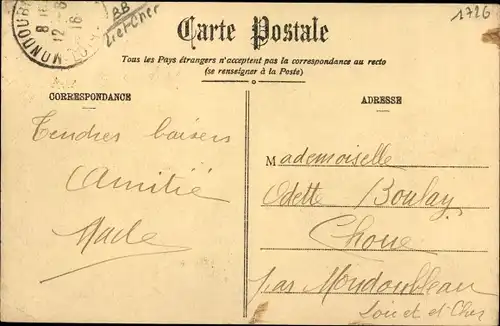 1726
BB
Carte Postale
Loir et Cher
MONDOUB
8
12 - 8
16
Tous les Pays étrangers n'acceptent pas la correspondance au recto
(se renseigner à la Poste)
CORRESPONDANCE
ADRESSE
Tendres baisers
Amitié
Mademoiselle
Odette Boulay
Choue
par Mondoubleau
Loir et Cher